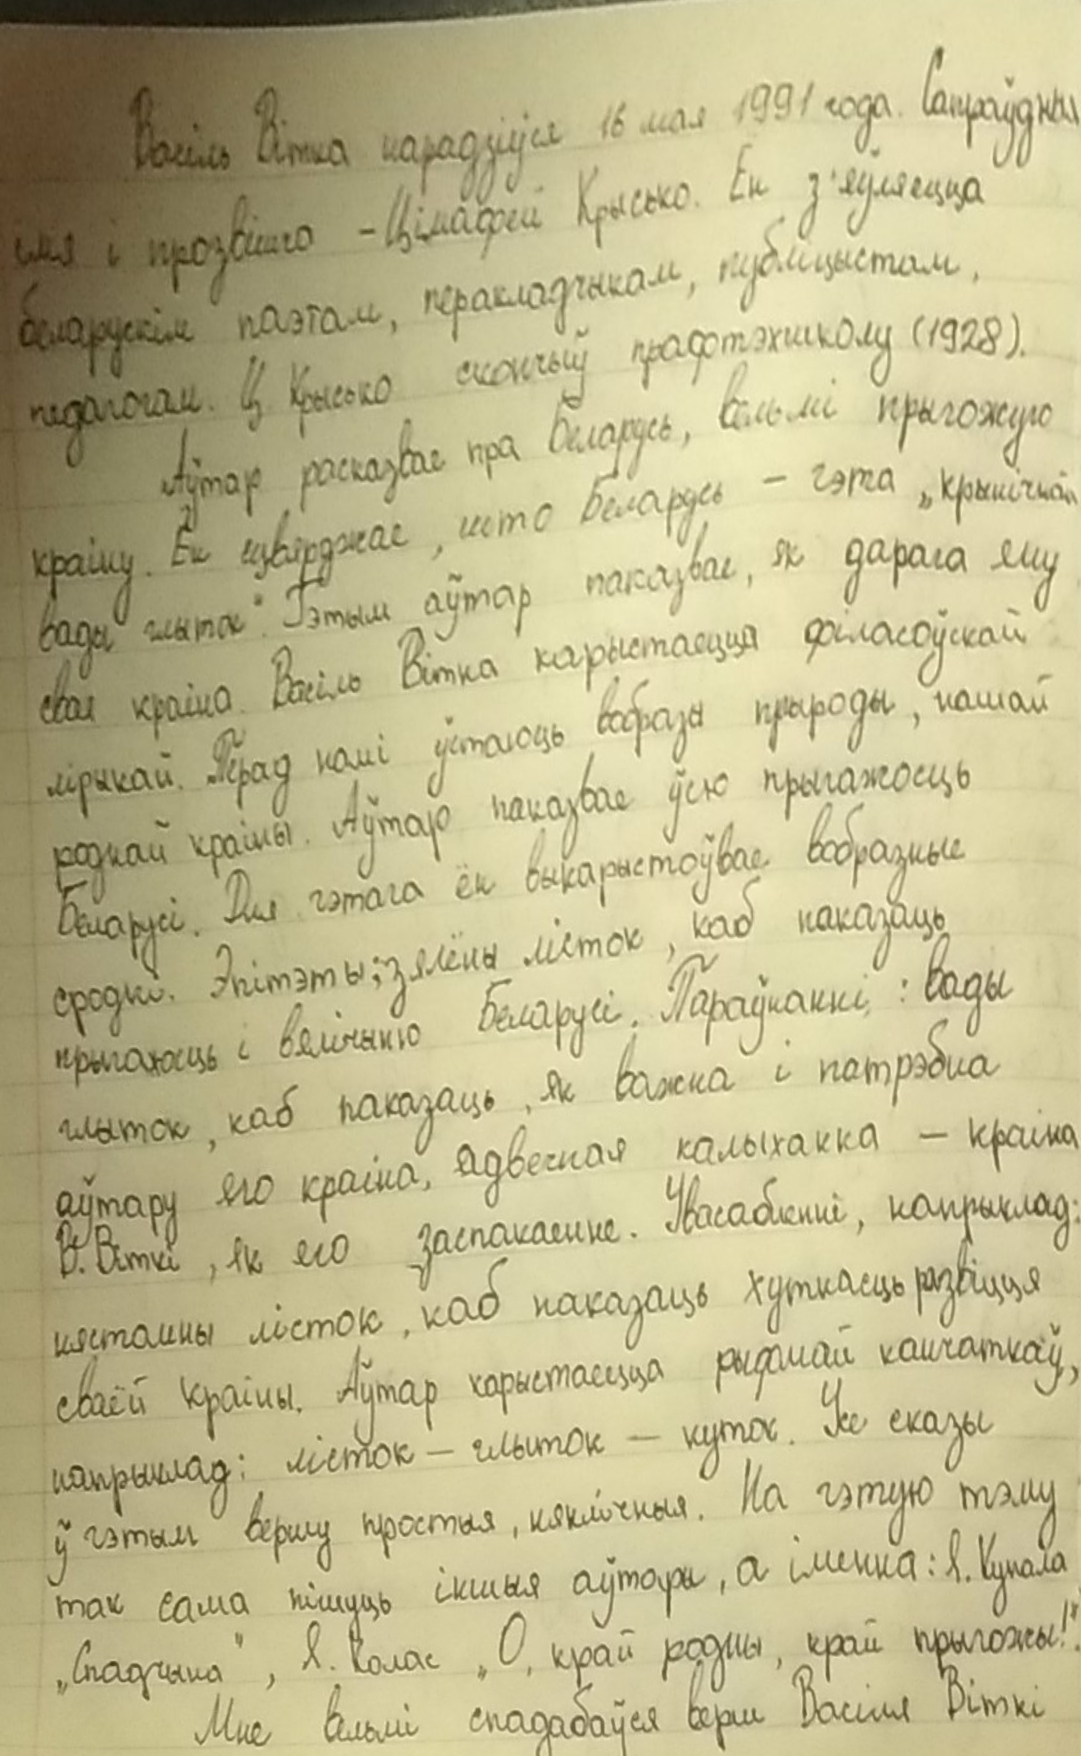 Васіль Вітка нарадзіўся 16 мая 1991 года. Сапраўдныя
імя і прозвішча - Цімафей Крысько. Ён з'яўляецца
беларускім паэтам, перакладчыкам, публіцыстам,
педагогам. Ц Крысько скончыў прафтэхшколу (1928).
Аўтар расказвае пра Беларусь, вельмі прыгожую
краіну. Ён цвярджае, што Беларусь - гэта „крынічнай
вады глыток". Гэтым аўтар паказвае, як дарага яму
свая краіна. Васіль Вітка карыстаецца філасоўскай
лірыкай. Перад намі ўстаюць вобразы прыроды, нашай
роднай краіны. Аўтар паказвае ўсю прыгажосць
Беларусі. Для гэтага ён выкарыстоўвае вобразныя
сродкі. Эпітэты: зялёны лісток, каб паказаць
прыгажосць і велічыню Беларусі. Параўнанні: вады
глыток, каб паказаць, як важна і патрэбна
аўтару яго краіна, адвечная калыханка - краіна
В. Віткі, як яго заспакаенне. Увасабленні, напрыклад:
нястомны лісток, каб паказаць хуткасць развіцця
сваёй краіны. Аўтар карыстаецца рыфмай канчаткаў,
напрыклад: лісток - глыток - куток. Усе сказы
ў гэтым вершу простыя, няклічныя. На гэтую тэму
так сама пішуць іншыя аўтары, а іменна: Я. Купала
„Спадчына", Я. Колас „О, край родны, край прыгожы!".
Мне вельмі спадабаўся верш Васіля Віткі